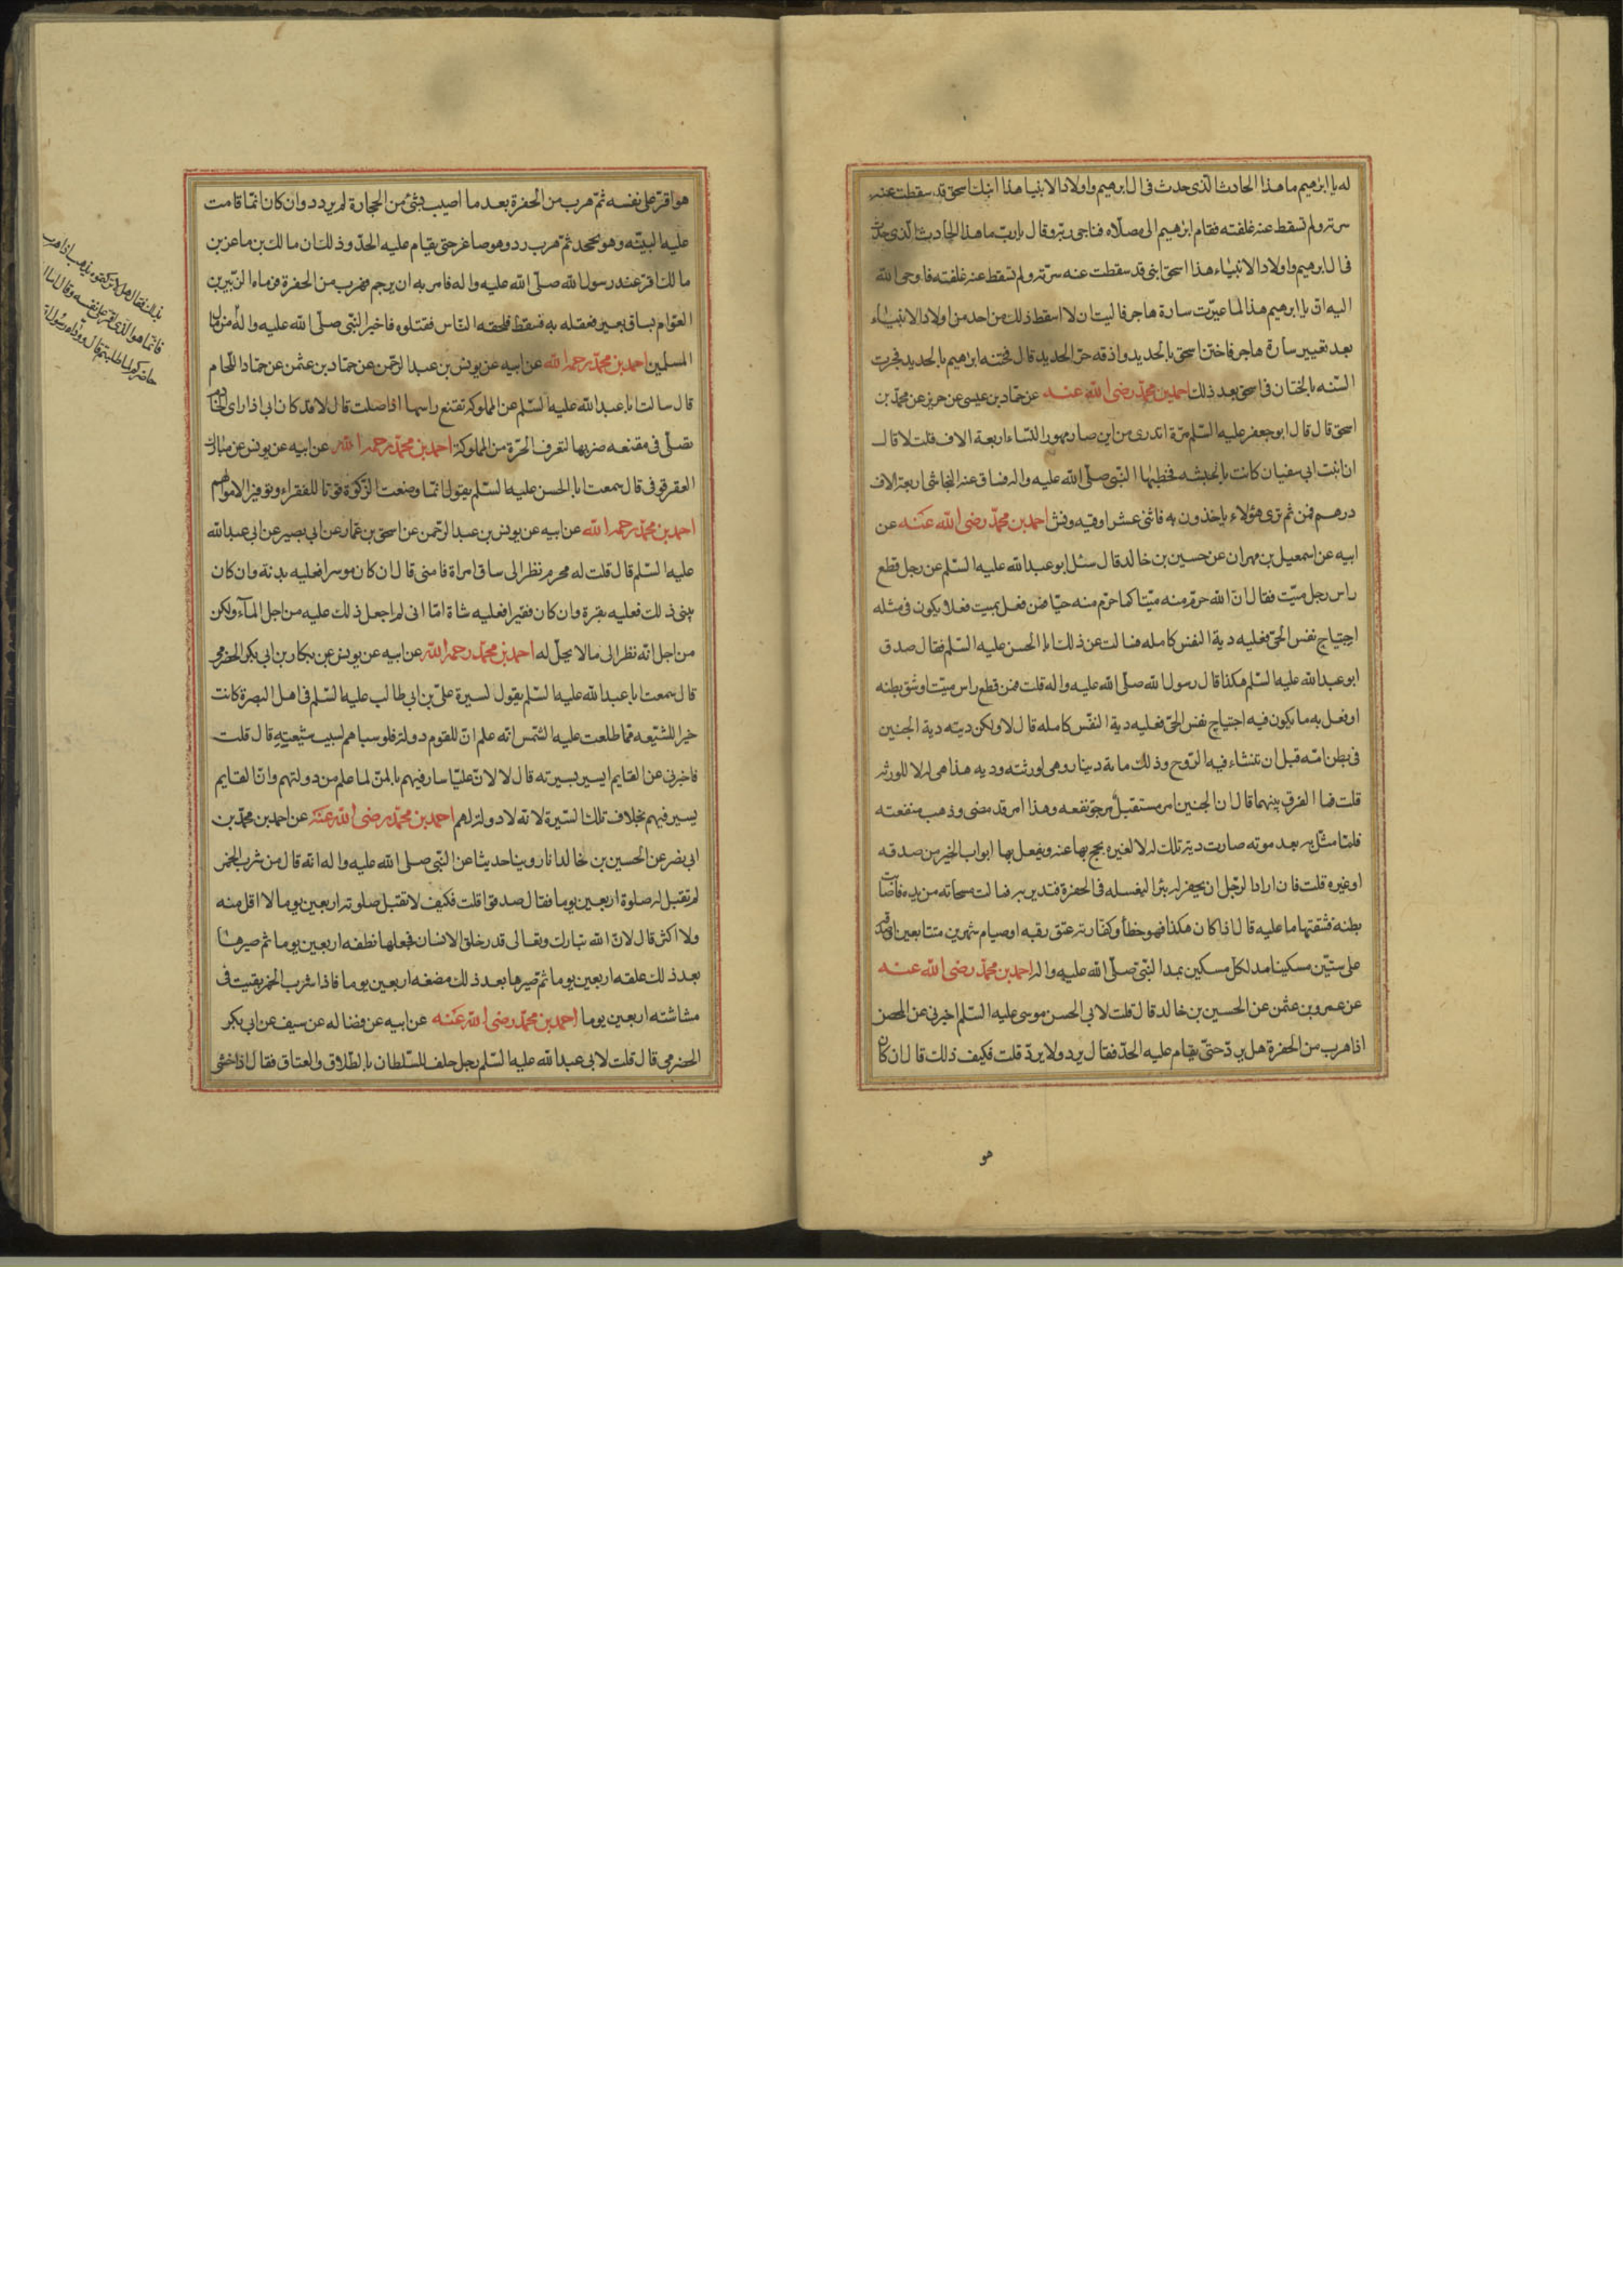 له يا ابرهيم ما هذا الحادث الذى حدث فى ال ابرهيم واولاد الانبيا هذا ابنك اسحق قد سقطت عنه
سرته ولم تسقط عنه غلفته فقام ابرهيم الى مصلاه فناجى ربه وقال يا رب ما هذا الحادث الذى حدث
فى ال ابرهيم واولاد الانبياء هذا اسحق ابنى قد سقطت عنه سرته ولم تسقط عنه غلفته فاوحى الله
اليه ان يا ابرهيم هذا لما عيرت سارة هاجر فاليت ان لا اسقط ذلك من احد من اولاد الانبياء
بعد تعيير سارة هاجر فاختن اسحق بالحديد واذقه حر الحديد قال فختنه ابرهيم بالحديد فجرت
السنه بالختان فى اسحق بعد ذلك احمد بن محمد رضى الله عنه عن حماد بن عيسى عن حريز عن محمد بن
اسحق قال قال ابو جعفر عليه السلم مرة اتدرى من اين صار مهور النساء اربعة الاف قلت لا قال
ان بنت ابى سفيان كانت بالحبشه فخطبها النبى صلى الله عليه واله فساق عنه النجاشى اربعة الاف
درهم فمن ثم ترى هؤلاء ياخذون به فاثنى عشر اوقيه ونش احمد بن محمد رضى الله عنه عن
ابيه عن اسمعيل بن مهران عن حسين بن خالد قال سئل ابو عبد الله عليه السلم عن رجل قطع
راس رجل ميت فقال ان الله حرم منه ميتا كما حرم منه حيا فمن فعل بميت فعلا يكون فى مثله
اجتياح نفس الحى فعليه دية النفس كامله فسالت عن ذلك ابا الحسن عليه السلم فقال صدق
ابو عبد الله عليه السلم هكذا قال رسول الله صلى الله عليه واله قلت فمن قطع راس ميت او شق بطنه
او فعل به ما يكون فيه اجتياح نفس الحى فعليه دية النفس كامله قال لا ولكن ديته دية الجنين
فى بطن امه قبل ان تنشاء فيه الروح وذلك ماية دينار وهى لورثته وديه هذا هى له لا للورثه
قلت فما الفرق بينهما قال ان الجنين امر مستقبل مرجو نفعه وهذا امر قد مضى وذهب منفعته
فلما مثل به بعد موته صارت ديته تلك له لا لغيره يحج بها عنه ويفعل بها ابواب الخير من صدقه
او غيره قلت فان اراد الرجل ان يحفر له بئرا ليغسله فى الحفرة فتدير به فمالت مسحاته من يده فاصابت
بطنه فشقتها ما عليه قال اذا كان هكذا فهو خطأ وكفارته عتق رقبه او صيام شهرين متتابعين او صدقه
على ستين مسكينا مد لكل مسكين بمد النبى صلى الله عليه واله احمد بن محمد رضى الله عنه
عن عمرو بن عثمن عن الحسين بن خالد قال قلت لابى الحسن موسى عليه السلم اخبرنى عن المحصن
اذا هرب من الحفرة هل يرد حتى يقام عليه الحد فقال يرد ولا يرد قلت فكيف ذلك قال ان كان
هو
هو اقر على نفسه ثم هرب من الحفرة بعد ما اصيب بشئ من الحجارة لم يردد وان كان انما قامت
عليه البينه وهو يجحد ثم هرب رد وهو صاغر حتى يقام عليه الحد وذلك ان مالك بن ماعز بن
مالك اقر عند رسول الله صلى الله عليه واله فامر به ان يرجم فهرب من الحفرة فرماه الزبير بن
العوام بساق بعير فعقله به فسقط فلحقه الناس فقتلوه فاخبر النبى صلى الله عليه واله من مال
المسلمين احمد بن محمد رحمه الله عن ابيه عن يونس بن عبد الرحمن عن حماد بن عثمن عن حماد اللحام
قال سالت ابا عبد الله عليه السلم عن المملوكه تقنع راسها اذا صلت قال لا قد كان ابى اذا راى الخادم
تصلى فى مقنعه ضربها لتعرف الحرة من المملوكة احمد بن محمد رحمه الله عن ابيه عن يونس عن مبارك
العقرقوفى قال سمعت ابا الحسن عليه السلم يقول انما وضعت الزكوة قوتا للفقراء وتوفيرا لاموالهم
احمد بن محمد رحمه الله عن ابيه عن يونس بن عبد الرحمن عن اسحق بن عمار عن ابى بصير عن ابى عبد الله
عليه السلم قال قلت له محرم نظر الى ساق امراة فامنى قال ان كان موسرا فعليه بدنة وان كان
بينى ذلك فعليه بقرة وان كان فقيرا فعليه شاة اما انى لم اجعل ذلك عليه من اجل المآء ولكن
من اجل انه نظر الى ما لا يحل له احمد بن محمد رحمه الله عن ابيه عن يونس عن بكار بن ابى بكر الحضرمى
قال سمعت ابا عبد الله عليه السلم يقول لسيرة على بن ابى طالب عليه السلم فى اهل البصرة كانت
خيرا للشيعه مما طلعت عليه الشمس انه علم ان للقوم دولة فلو سباهم لسبيت شيعته قال قلت
فاخبرنى عن القايم ايسير بسيرته قال لا لان عليا سار فيهم بالمن لما علم من دولتهم وان القايم
يسير فيهم بخلاف تلك السيرة لانه لا دولة لهم احمد بن محمد رضى الله عنه عن احمد بن محمد بن
ابى نصر عن الحسين بن خالد انا روينا حديثا عن النبى صلى الله عليه واله انه قال من شرب الخمر
لم تقبل له صلوة اربعين يوما فقال صدقوا قلت فكيف لا تقبل صلوته اربعين يوما لا اقل منه
ولا اكثر قال لان الله تبارك وتعالى قدر خلق الانسان فجعلها نطفه اربعين يوما ثم صيرها
بعد ذلك علقه اربعين يوما ثم صيرها بعد ذلك مضغه اربعين يوما فاذا شرب الخمر بقيت فى
مشاشته اربعين يوما احمد بن محمد رضى الله عنه عن ابيه عن فضاله عن سيف عن ابى بكر
الحضرمى قال قلت لابى عبد الله عليه السلم رجل حلف للسلطان بالطلاق والعتاق فقال اذا خشى
بذلك فقال هلا تركتموه يذهب اذا هرب
فانما هو الذى اقر على نفسه وقال اما لو
حاضركم لما طلبتم قال ووداه رسول الله